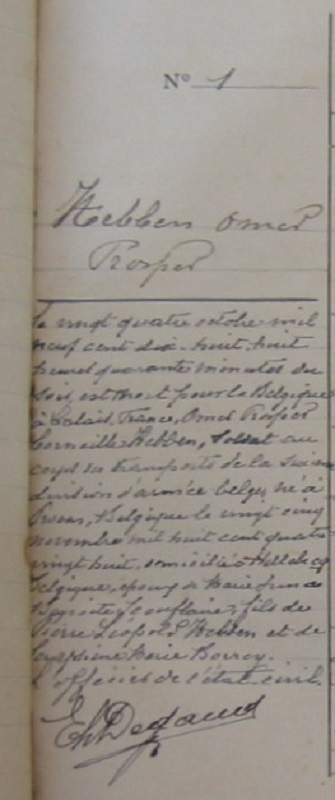 N° 1
Hebben Omer
Prosper
Le vingt quatre octobre mil
neuf cent dix-huit huit
heures quarante minutes du
soir, est mort pour la Belgique
à Calais, France, Omer Prosper
Corneille Hebben, Soldat au
corps des transports de la sixième
division d'armée belge, né à
Belgique le vingt cinq
novembre mil huit cent quatre
vingt huit, domicilié à
Belgique, époux de Marie
fils de
Pierre Léopold Hebben et de
Marie
L'officier de l'état civil.